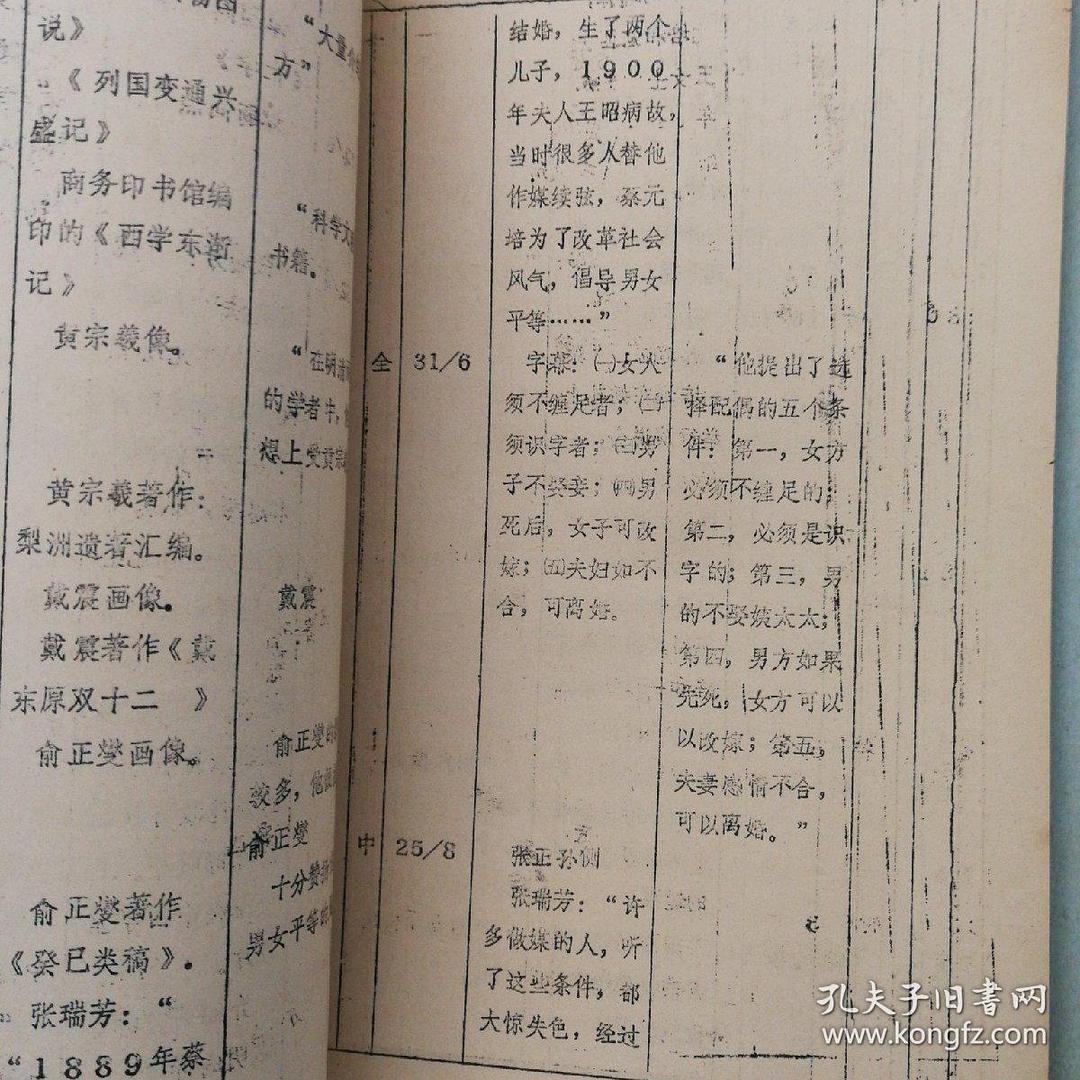 说》
《列国变通兴
盛记》
商务印书馆编
印的《西学东渐
记》
黄宗羲像。
黄宗羲著作：
梨洲遗著汇编。
戴震画像。
戴震著作《戴
东原双十二 》
俞正燮画像。
俞正燮著作
《癸巳类稿》。
张瑞芳：“
“1889年蔡
“大量
方”
“科学
书籍。
“在明清
的学者中，
想上受黄宗
戴震
俞正燮的
较多，他
俞正燮
十分赞
男女平等
全 31/6
中 25/8
结婚，生了两个
儿子，1900
年夫人王昭病故，
当时很多人替他
作媒续弦，蔡元
培为了改革社会
风气，倡导男女
平等……”
字幕：㈠女
须不缠足者；㈡
须识字者；㈢男
子不娶妾；㈣男
死后，女子可改
嫁；㈤夫妇如不
合，可离婚。
张正 侧
张瑞芳：“许
多做媒的人，听
了这些条件，都
大惊失色，经过
“他提出了选
择配偶的五个条
件：第一，女方
必须不缠足的；
第二，必须是识
字的；第三，男
的不娶姨太太；
第四，男方如果
先死，女方可以
以改嫁；第五，
夫妻感情不合，
可以离婚。”
孔夫子旧书网
www.kongfz.com